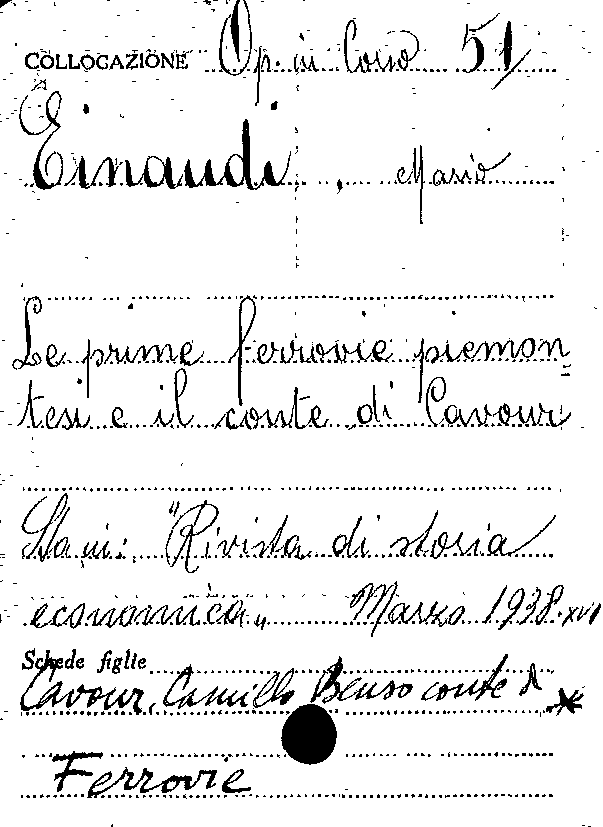 COLLOCAZIONE Op. in Corso 51/
Einaudi, Mario
Le prime ferrovie piemon=
tesi e il conte di Cavour
Sta in: "Rivista di storia
economica„ Marzo 1938-XVI
Schede figlie
Cavour, Camillo Benso conte di *
Ferrovie